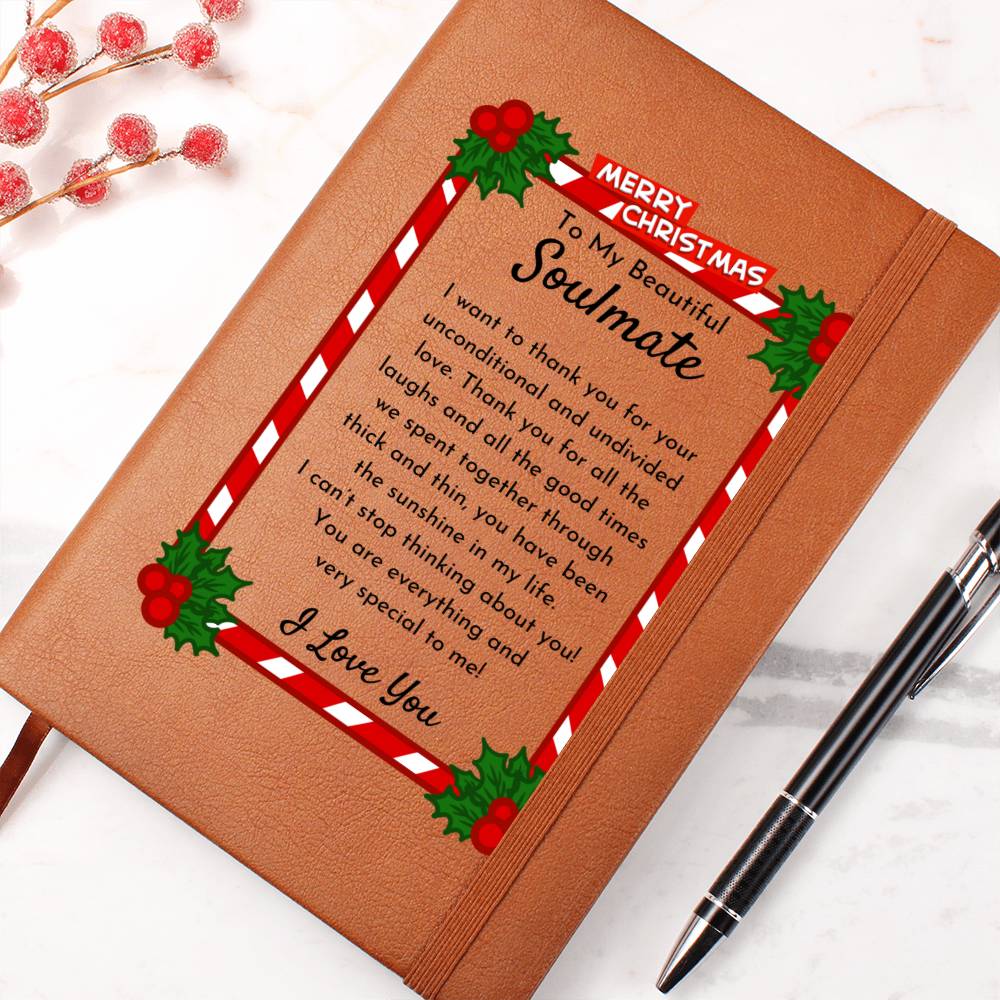 MERRY
CHRISTMAS
To My Beautiful
Soulmate
I want to thank you for your
unconditional and undivided
love. Thank you for all the
laughs and all the good times
we spent together through
thick and thin, you have been
the sunshine in my life.
I can't stop thinking about you!
You are everything and
very special to me!
I Love You